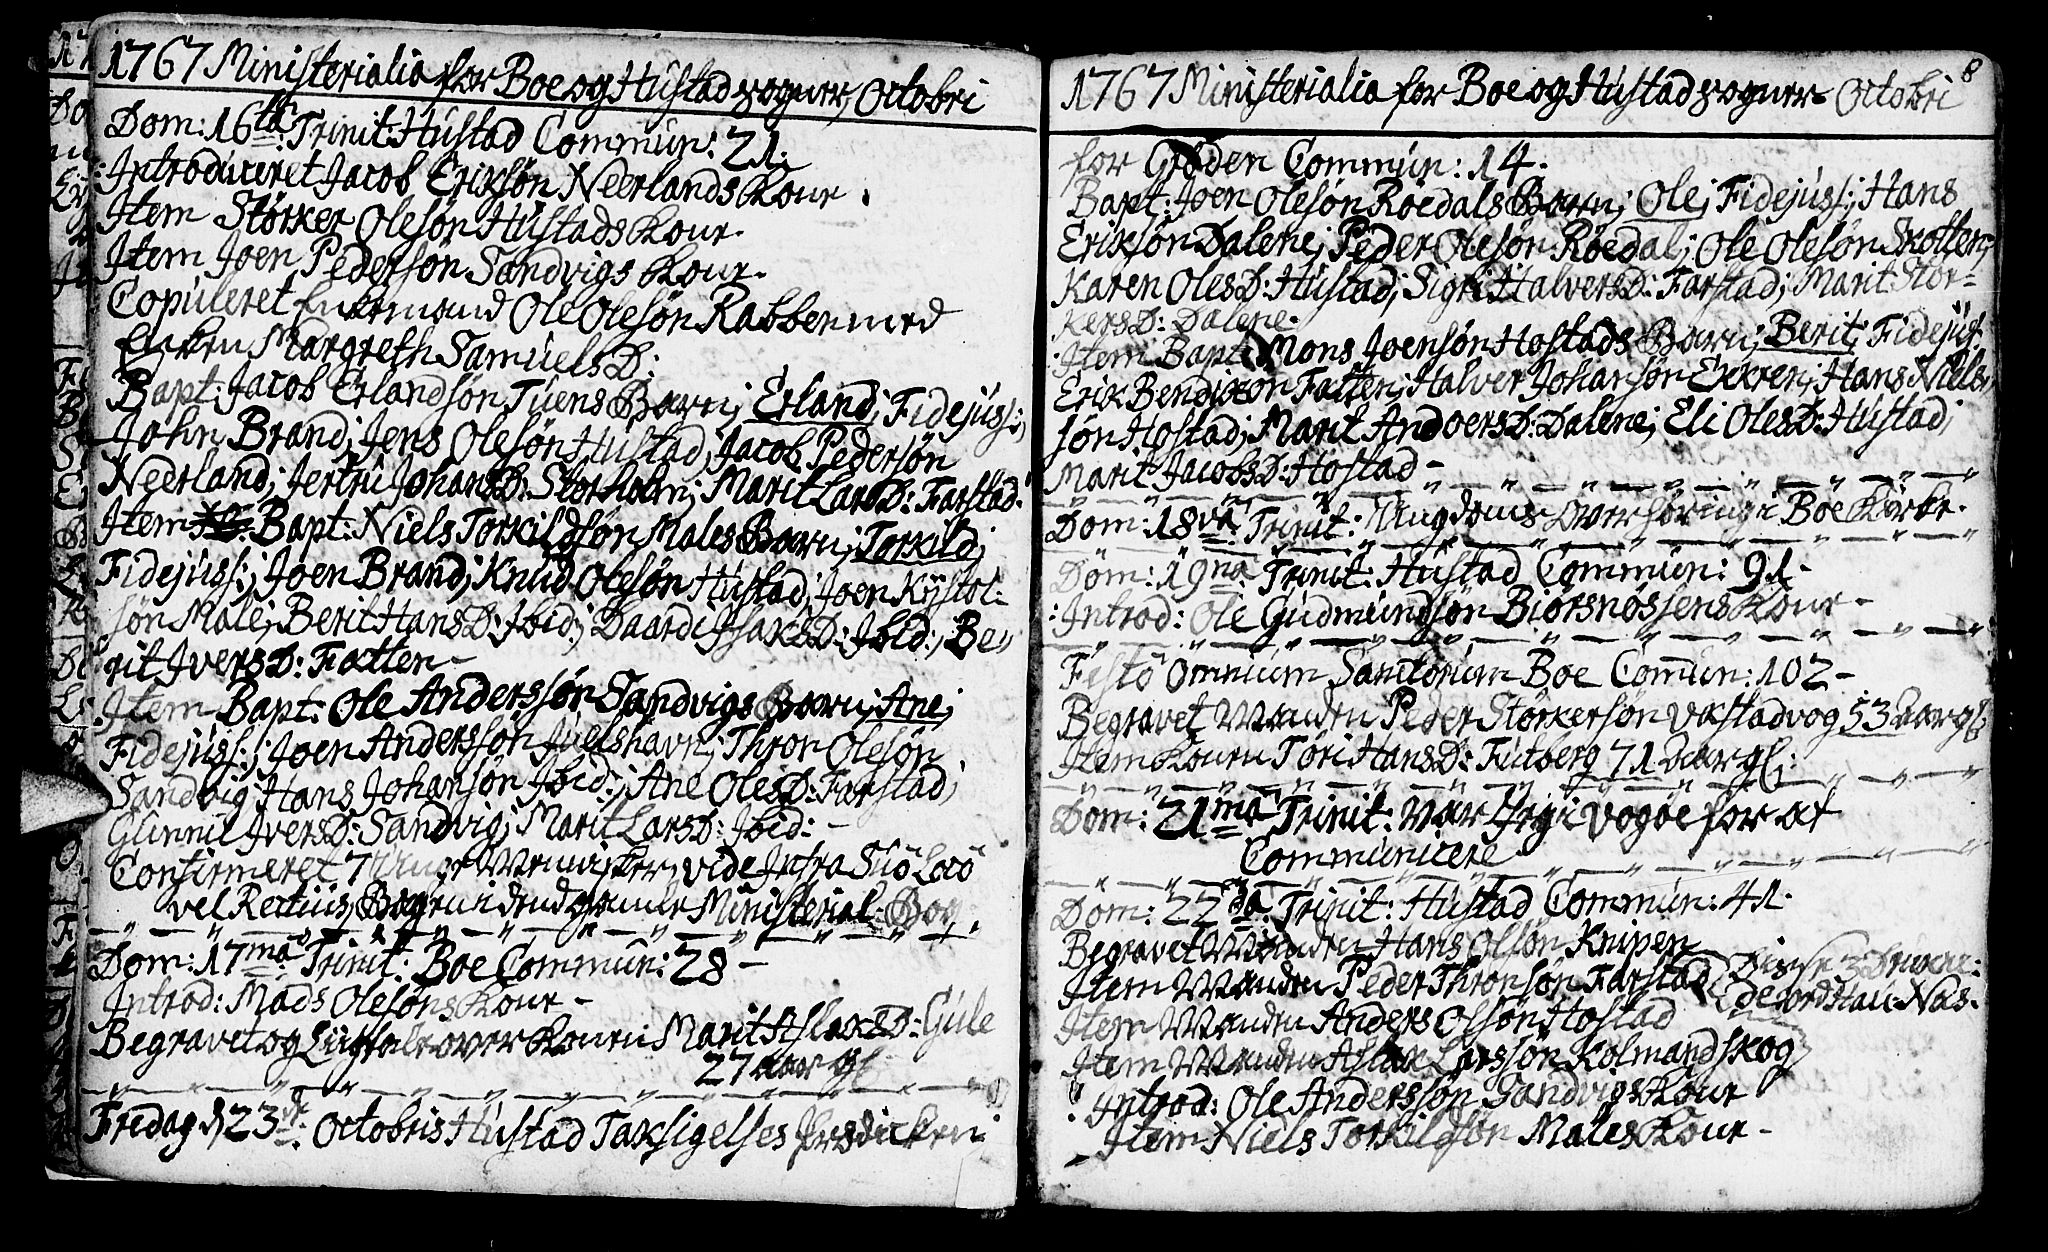 1767 Ministerialia for Boe og Hustad sogner, Octobri
Dom: 16ta Trinit: Hustad Commun: 21.
Introduceret Jacob Eriksøn Neerlands Kone.
Item Størker Olesøn Hustads Kone.
Item Joen Pedersøn Sandvigs Kone.
Copuleret Enkemand Ole Olesøn Rabben med
Enken Margreth SamuelsD:
Bapt: Jacob Erlandsøn Tuens Barn; Erland; Fidejuss:;
John Brand; Jens Olesøn Hustad; Jacob Pedersøn
Neerland; Jertru JohansD: Storholm; Marit LarsD: Farstad.
Item Bapt: Niels Torkildsøn Males Barn; Torkild;
Fidejuss:; Joen Brand; Knud Olesøn Hustad; Joen Kystol:
søn Male; Berit HansD: Ibid; Baardi IsaksD: Ibid:; Be,,
rit IversD: Fatten –
Item Bapt: Ole Anderssøn Sandvigs Barn; Ane;
Fidejuss:; Joen Anderssøn Juelshavn; Thron Olesøn
Sandvig; Hans Johansøn Ibid:; Ane OlesD: Farstad;
Gunnil IversD: Sandvig; Marit LarsD: Ibid: –
Confirmeret 7 Unge Mennisker, vide Infra Suo Loco
vel Rectius Bagen i dend gamle Ministerial-Bog
Dom: 17ma Trinit: Boe Commun: 28 –
Introd: Mads Olesøns Kone –
Begravet og Liigtale over Konen Marit AslaksD: Gule
27 Aar gl
Fredag d 23de Octobris Hustad Taksigelses Prædicken
1767 Ministerialia for Boe og Hustad sogner Octobri 8
for Grøden Commun: 14.
Bapt: Joen Olesøn Røedals Barn; Ole; Fidejuss:; Hans
Eriksøn Dalene; Peder Olesøn Røedal; Ole Olesøn Skotten;
Karen OlesD: Hustad; Sigri HalversD: Farstad; Marit Stør-
kersD: Dalene.
Item Bapt: Mons Joensøn Hostads Barn; Berit; Fidejus:
Erik Bendixon Fatten; Halver Johansøn Ekren; Hans Niels,,
søn Hostad; Marit AndoersD: Dalene; Eli OlesD: Hustad;
Marit JacobsD: Hostad –
Dom: 18va Trinit: Ungdoms Overhøring i Boe Kirke.
Dom: 19na Trinit: Hustad Commun: 91.
Introd: Ole Gudmundsøn Biørnsnøssens Kone –
Festo Omnium Sanctorum Boe Comun: 102 –
Begravet Manden Peder Størkersøn Vastadvog 53 Aar gl:
Item Konen Tøri HansD: Futberg 71 Aar gl:
Dom: 21ma Trinit: Var Jeg i Vogøe for at
Communicere
Dom: 22da Trinit: Hustad Commun: 41.
Begravet Manden Hans Olsøn Knipen
Item Manden Peder Thronsøn Farstad
Disse 3 druk:
Item Manden Anders Olsøn Hostad
Item Manden Aslak Larssøn Kolmandskog
Introd: Ole Anderssøn Sandvigs Kone
Item Niels Torkildsøn Males Kone –